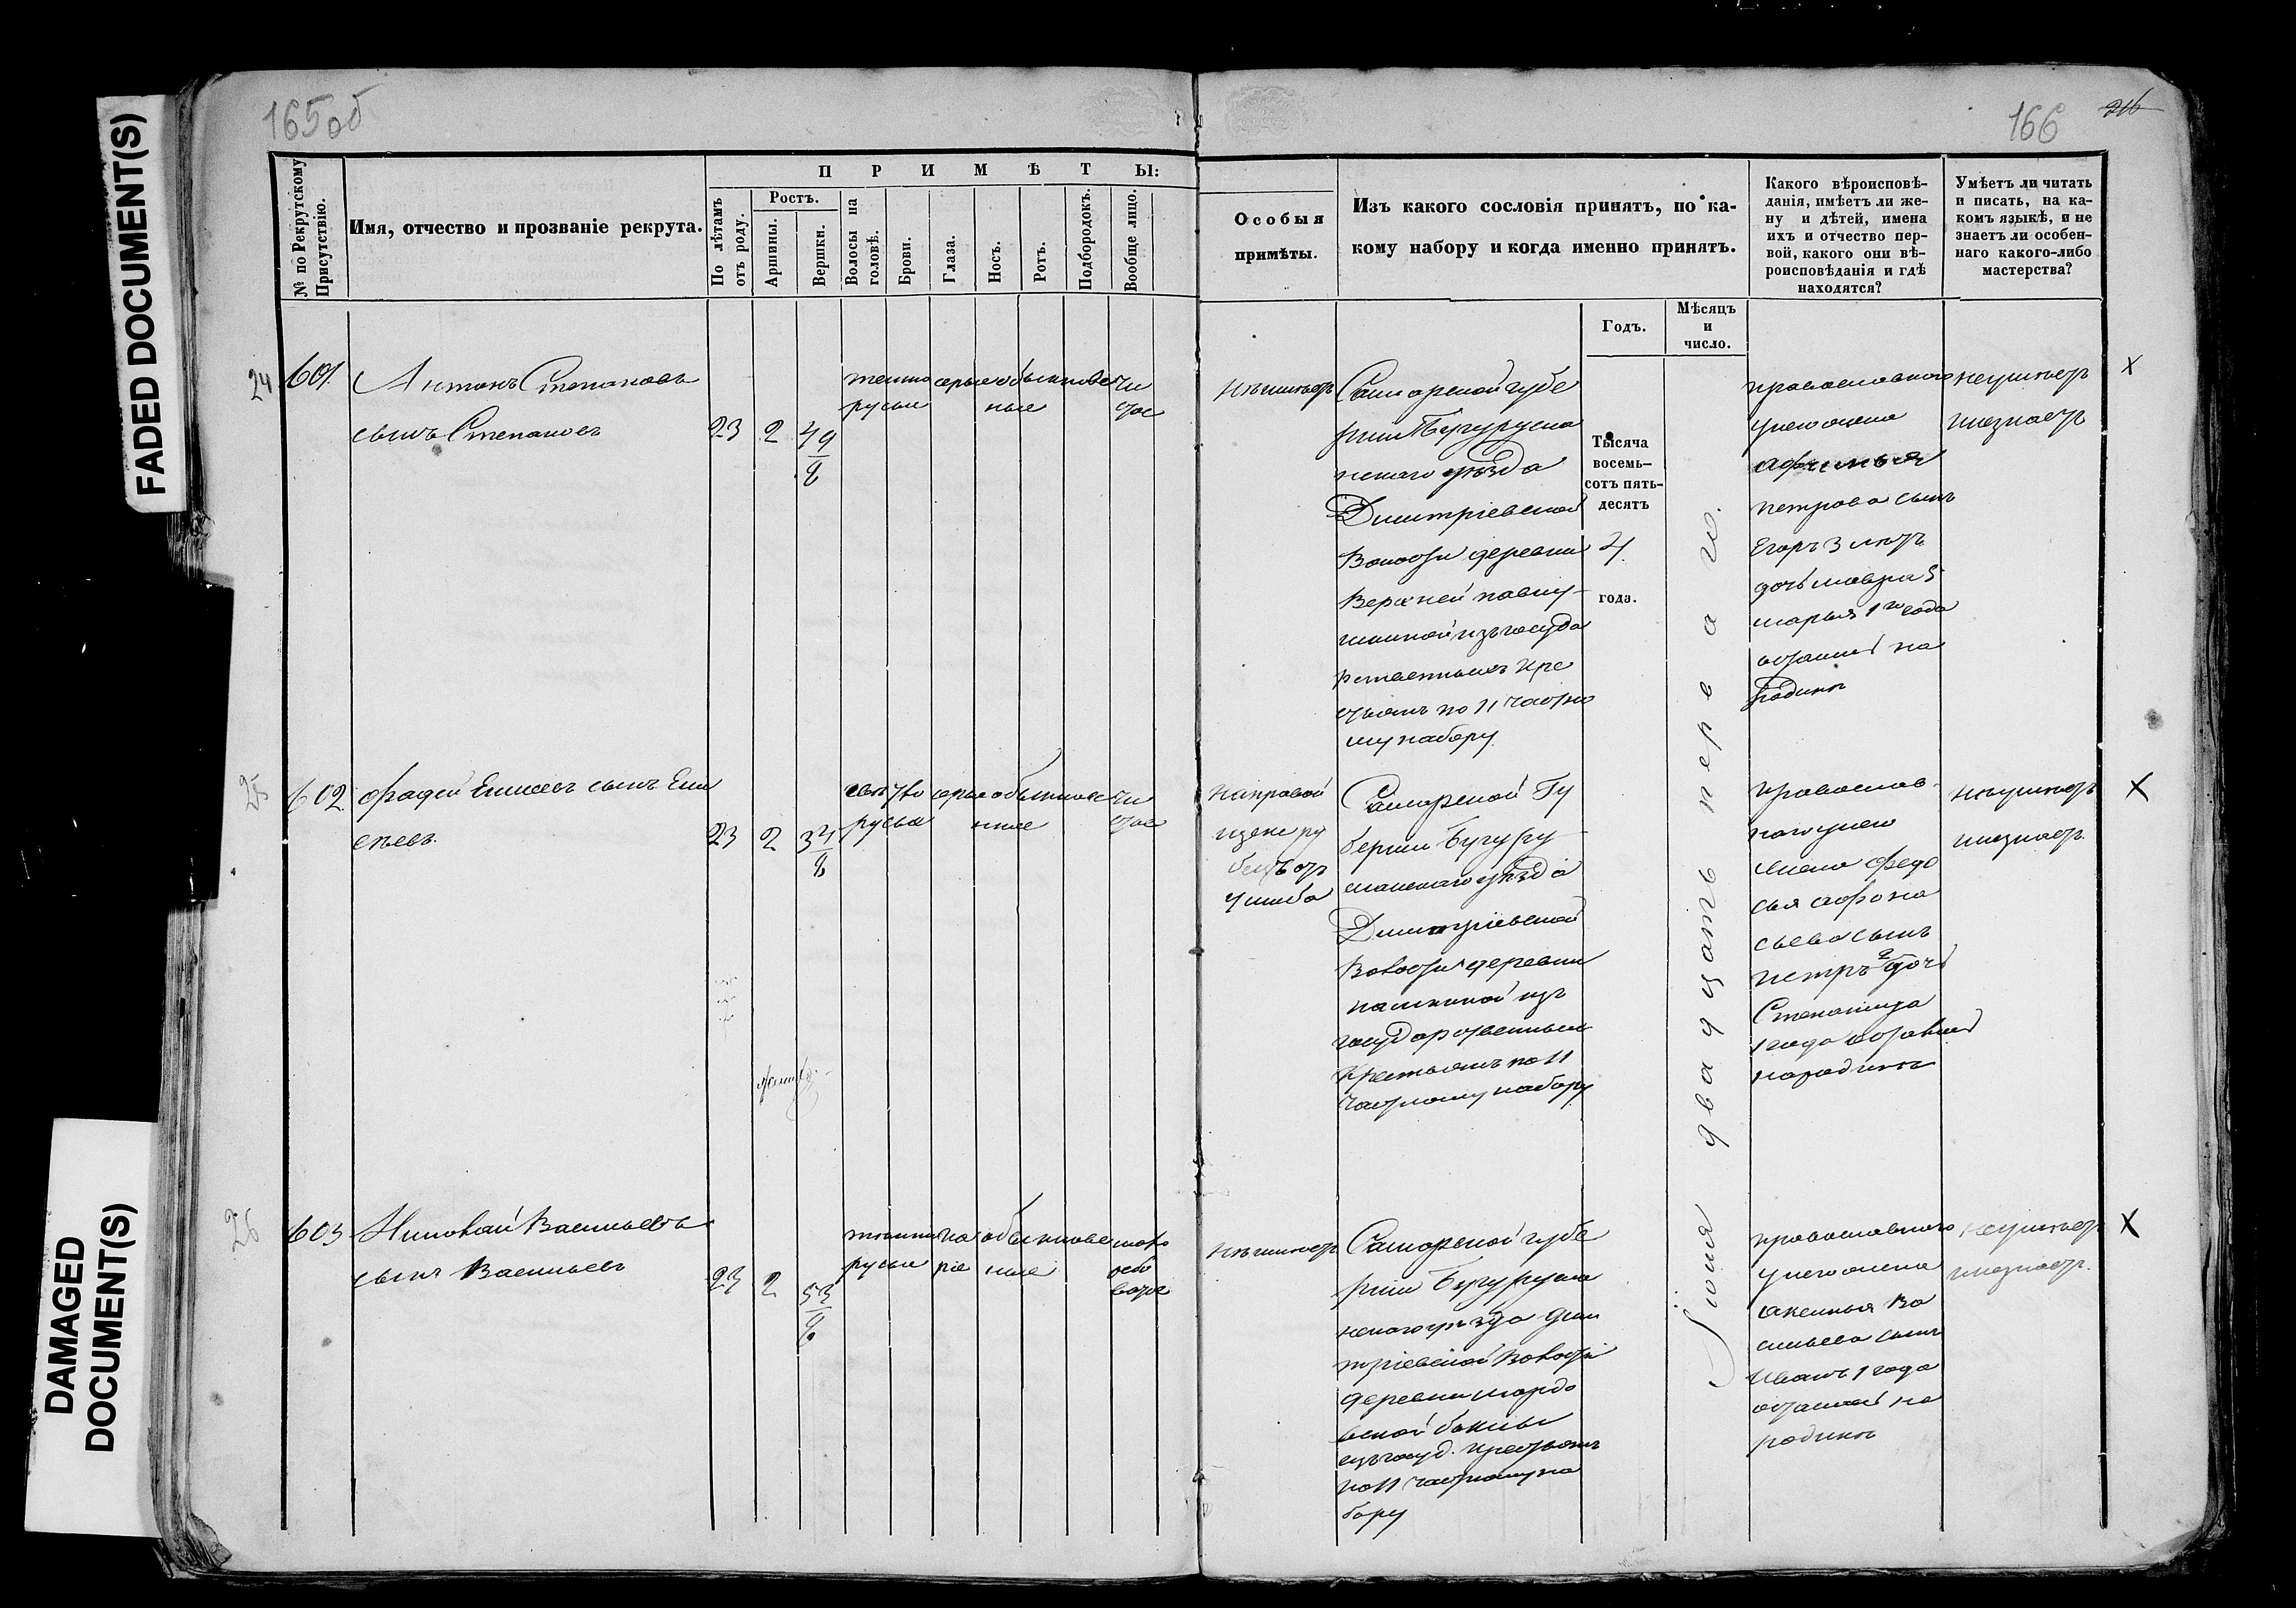 FADED DOCUMENT(S)
DAMAGED
DOCUMENT(S)
165об
166
216
№ по Рекрутскому
Присутствію.
Имя, отчество и прозваніе рекрута.
ПРИМѢТЫ:
По лѣтамъ
отъ роду.
Ростъ.
Аршины.
Вершки.
Волосы на
головѣ.
Брови.
Глаза.
Носъ.
Ротъ.
Подбородокъ.
Вообще лицо.
Особыя
примѣты.
Изъ какого сословія принятъ, по ка-
кому набору и когда именно принятъ.
Годъ.
Мѣсяцъ
и
число.
Какого вѣроисповѣ-
данія, имѣетъ ли же-
ну и дѣтей, имена
ихъ и отчество пер-
вой, какого они вѣ-
роисповѣданія и гдѣ
находятся?
Умѣетъ ли читать
и писать, на ка-
комъ языкѣ, и не
знаетъ ли особен-
наго какого-либо
мастерства?
Тысяча
восемь-
сотъ пять-
десятъ
4
года.
Іюня двадцать перваго.
24
601.
Антонъ Степановъ
сынъ Степановъ
23 2 4 9/8
темно
русые
серые
обыкновен
ные
чи
стое
неимѣетъ
Самарской губе
рніи Бугурусла
нскаго уѣзда
Дмитріевской
Волости деревни
Верхней
изъ госуда
рственныхъ кре
стьянъ по 11 частно
му набору
православнаго
унего жена
афимья
петрова сынъ
Егоръ 3 летъ
дочь мавра 5
марья 1 го года
остались на
Родинѣ
неумѣетъ
инезнаетъ
X
25
602
Фадей Елисеевъ сынъ Ели
сеевъ.
23 2 3 4/8
светло
русые
серые
обыкнове
нные
чи
стое
На правой
щеке ру
бецъ отъ
ушиба
Самарской Гу
берніи Бугуру
сланскаго уѣзда
Дмитріевской
Волости деревни
изъ
государственныхъ
Крестьянъ по 11
частному набору
православ-
наго унего
жена федо
сья афона
сьева сынъ
петръ 2 дочь
Степанида
1 года оставши
народинѣ
неумѣетъ
инезнаетъ
X
26
603
Николай Васильевъ
сынъ Васильевъ
23 2 5 3/8
темно
русые
ка
рие
обыкнове
ные
неимѣетъ
Самарской губе
рніи Бугурусла
нскаго уѣзда Дми
тріевской Волости
деревни мордо
вской
изъ госуд. крестьянъ
по 11 частному на
бору
православнаго
унего жена
аксинья Ва
сильева сынъ
Иванъ 1 года
остались на
родинѣ
неумѣетъ
инезнаетъ.
X